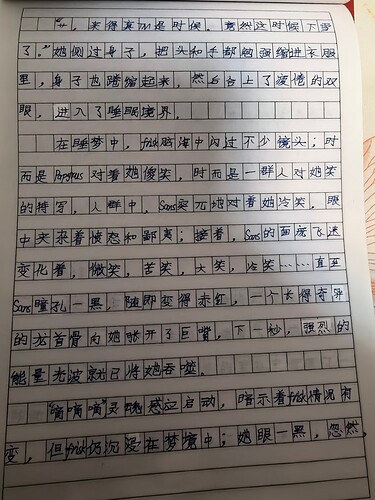 “艹，来得真TM是时候。竟然这时候下雪
了。”她侧过身子，把头和手都勉强缩进衣服
里，身子也蜷缩起来，然后合上了疲倦的双
眼，进入了睡眠境界。
在睡梦中，frisk脑海中闪过不少镜头；时
而是Papyrus对着她傻笑，时而是一群人对她笑
的特写，人群中，Sans突兀地对着她冷笑，眼
中夹杂着愤怒和鄙夷；接着，Sans的面庞飞速
变化着，微笑，苦笑，大笑，冷笑……直至
Sans瞳孔一黑，随即变得赤红，一个长得奇异
的龙首骨向她张开了巨嘴，下一秒，强烈的
能量光波就已将她吞噬。
“嘀嘀嘀”灵魂感应启动，暗示着frisk情况有
变，但frisk仍沉浸在梦境中；她眼一黑，忽然，